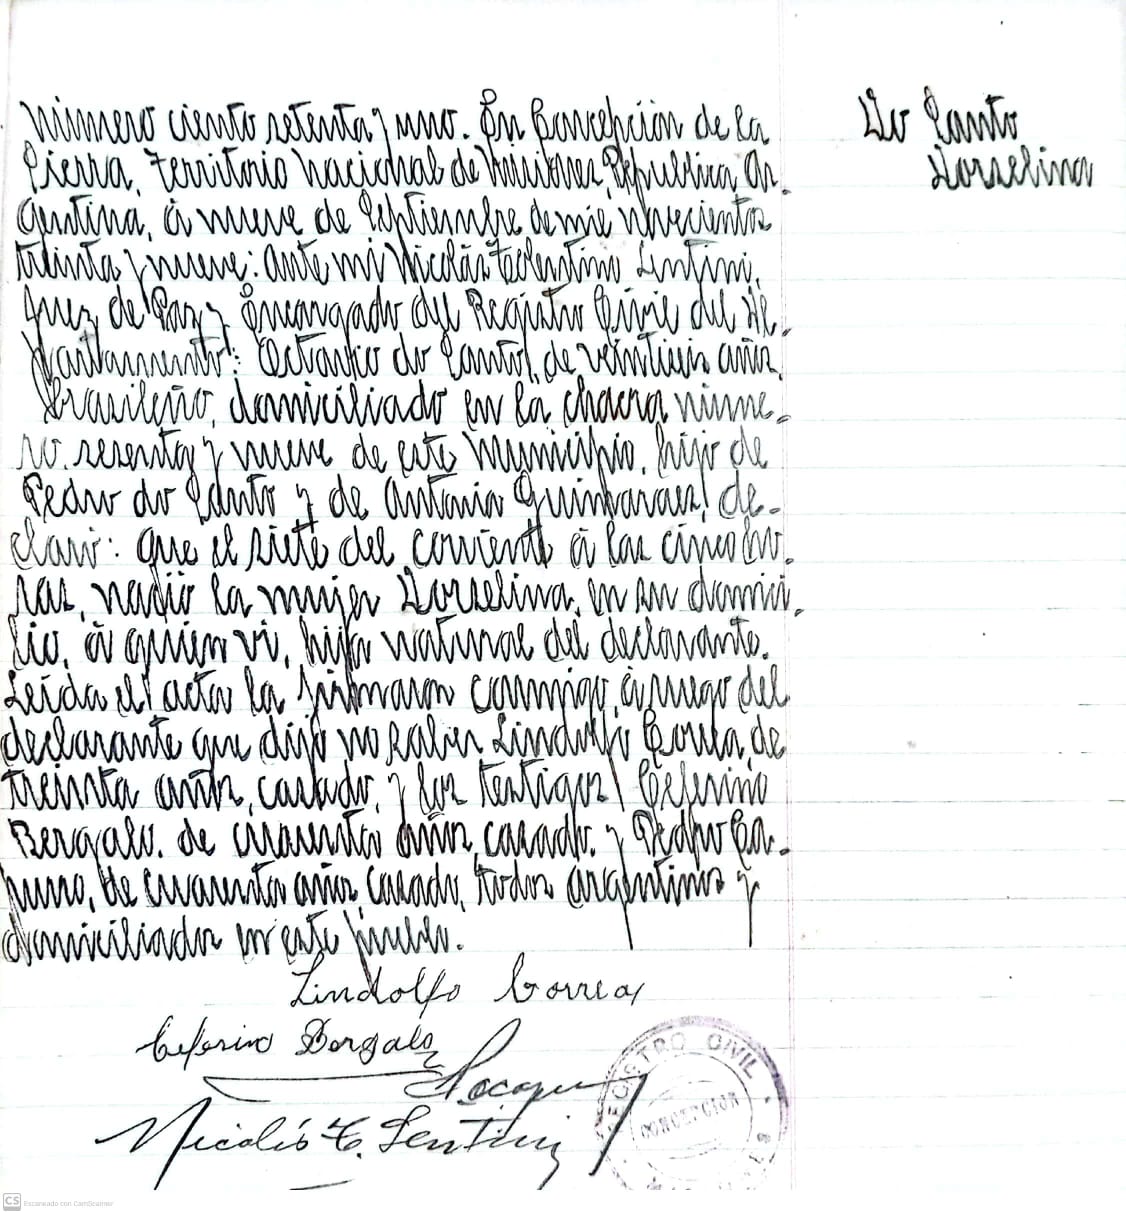 Número ciento setenta y uno. En Concepción de la
Sierra, Territorio Nacional de Misiones, República Ar-
gentina, á nueve de Septiembre de mil novecientos
treinta y nueve: ante mi Nicolás Tolentino Lentini,
Juez de Paz y Encargado del Registro Civil del De-
partamento: Octavio do Santo, de veintiseis años,
brasileño, domiciliado en la chacra núme-
ro sesenta y nueve de este Municipio, hijo de
Pedro do Santo y de Antonia Guimaraes, de-
claró: que el siete del corriente á las cinco ho-
ras, nació la mujer Dorselina, en su domici-
lio, á quien vi, hija natural del declarante.
Leída el acta la firmaron conmigo, á ruego del
declarante que dijo no saber Lindolfo Correa, de
treinta años, casado, y los testigos Ceferino
Bergalo, de cuarenta años, casado, y Pedro
de cuarenta años, casado, todos argentinos y
domiciliados en este pueblo.
Do Santo
Dorselina
Lindolfo Correa
Ceferino Bergalo
Nicolás T. Lentini
REGISTRO CIVIL
CONCEPCION
CS Escaneado con CamScanner